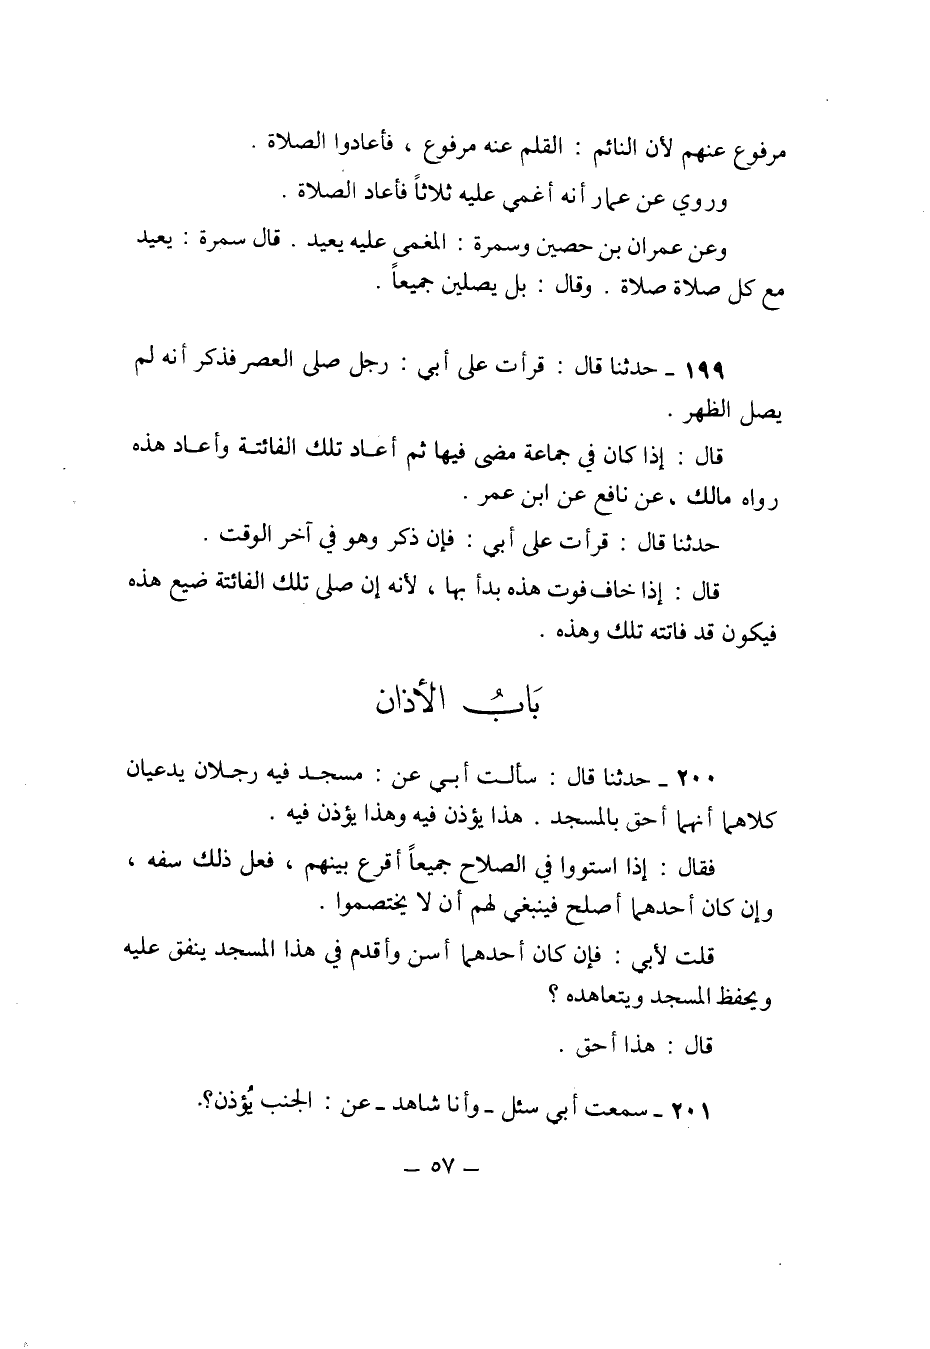 مرفوع عنهم لأن النائم : القلم عنه مرفوع ، فأعادوا الصلاة .
وروي عن عمار أنه أغمي عليه ثلاثاً فأعاد الصلاة .
وعن عمران بن حصين وسمرة : المغمى عليه يعيد . قال سمرة : يعيد
مع كل صلاة صلاة . وقال : بل يصلين جميعاً .
١٩٩ ـ حدثنا قال : قرأت على أبي : رجل صلى العصر فذكر أنه لم
يصل الظهر .
قال : إذا كان في جماعة مضى فيها ثم أعاد تلك الفائتة وأعاد هذه
رواه مالك ، عن نافع عن ابن عمر .
حدثنا قال : قرأت على أبي : فإن ذكر وهو في آخر الوقت .
قال : إذا خاف فوت هذه بدأ بها ، لأنه إن صلى تلك الفائتة ضيع هذه
فيكون قد فاتته تلك وهذه .
بَابُ الأذان
٢٠٠ ـ حدثنا قال : سألت أبي عن : مسجد فيه رجلان يدعيان
كلاهما أنهما أحق بالمسجد . هذا يؤذن فيه وهذا يؤذن فيه .
فقال : إذا استووا في الصلاح جميعاً أقرع بينهم ، فعل ذلك سفه ،
وإن كان أحدهما أصلح فينبغي لهم أن لا يختصموا .
قلت لأبي : فإن كان أحدهما أسن وأقدم في هذا المسجد ينفق عليه
ويحفظ المسجد ويتعاهده ؟
قال : هذا أحق .
٢٠١ ـ سمعت أبي سئل ـ وأنا شاهد ـ عن : الجنب يُؤذن؟.
— ٥٧ —